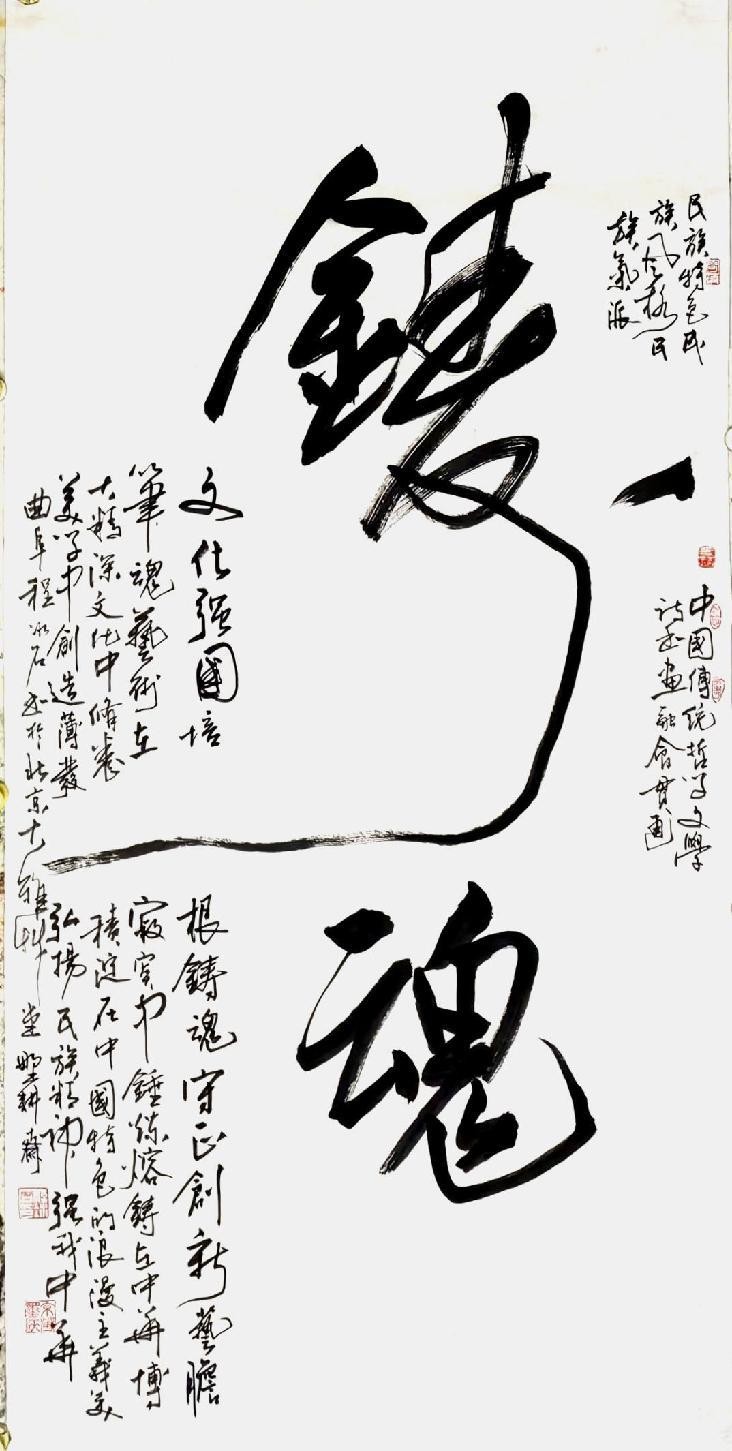 鑄魂
民族特色民
族风格民
族氣派
中國傳统哲学文學
诗书画融會貫通
文化强國培
根鑄魂守正創新藝膽
筆魂藝術在
寂寞中錘炼熔鑄在中華博
大精深文化中脩養
積淀在中國特色的浪漫主義美
美学中創造薄發
弘揚民族精神强我中華
曲阜程冰石书於北京大雅
堂 耕齋